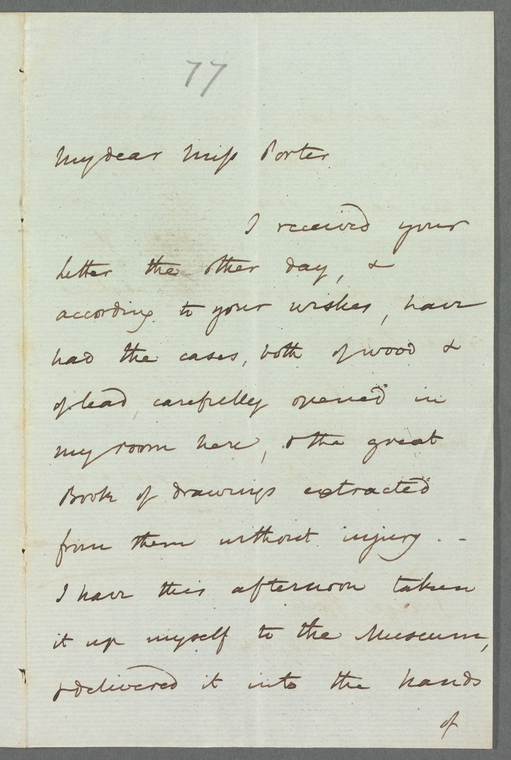 77
My dear Miss Porter
I received your
letter the other day, &
according to your wishes, have
had the cases, both of wood &
of lead carefully opened in
my room here, & the great
Book of drawings extracted
from them without injury. -
I have this afternoon taken
it up myself to the Museum,
& delivered it into the hands
of